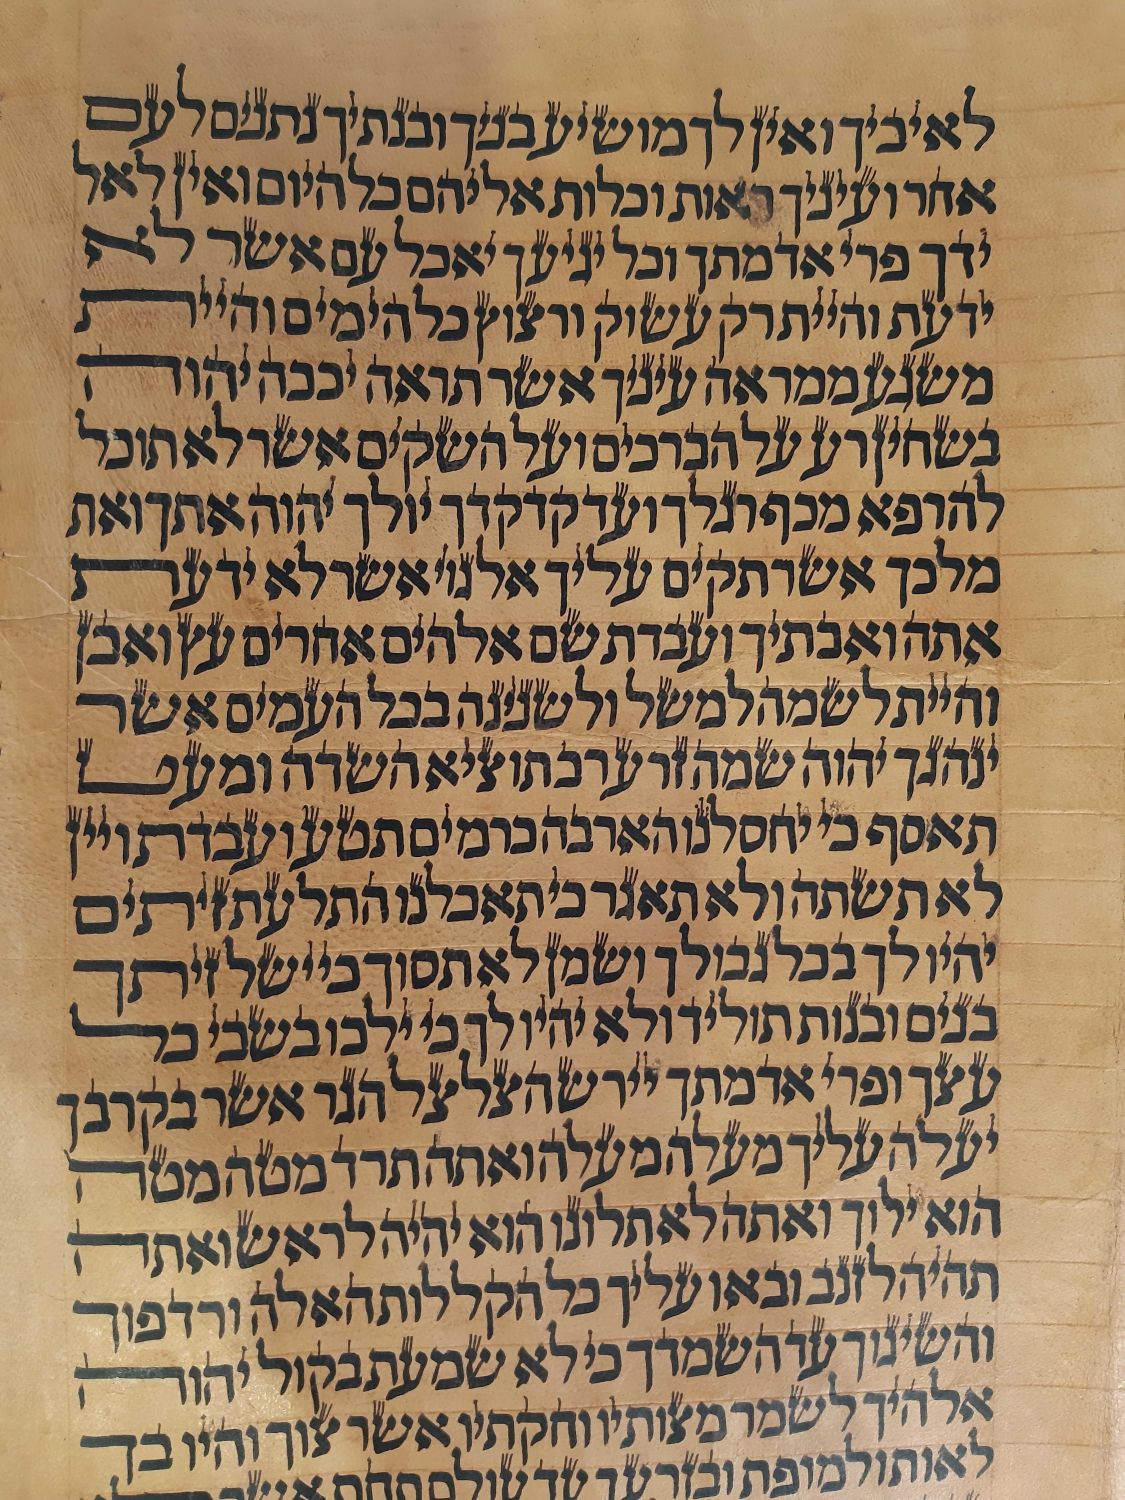 לאיביך ואין לך מושיע בניך ובנתיך נתנים לעם
אחר ועיניך ראות וכלות אליהם כל היום ואין לאל
ידך פרי אדמתך וכל יגיעך יאכל עם אשר לא
ידעת והיית רק עשוק ורצוץ כל הימים והיית
משגע ממראה עיניך אשר תראה יככה יהוה
בשחין רע על הברכים ועל השקים אשר לא תוכל
להרפא מכף רגלך ועד קדקדך יולך יהוה אתך ואת
מלכך אשר תקים עליך אל גוי אשר לא ידעת
אתה ואבתיך ועבדת שם אלהים אחרים עץ ואבן
והיית לשמה למשל ולשנינה בכל העמים אשר
ינהגך יהוה שמה זרע רב תוציא השדה ומעט
תאסף כי יחסלנו הארבה כרמים תטע ועבדת ויין
לא תשתה ולא תאגר כי תאכלנו התלעת זיתים
יהיו לך בכל גבולך ושמן לא תסוך כי ישל זיתך
בנים ובנות תוליד ולא יהיו לך כי ילכו בשבי כל
עצך ופרי אדמתך יירש הצלצל הגר אשר בקרבך
יעלה עליך מעלה מעלה ואתה תרד מטה מטה
הוא ילוך ואתה לא תלונו הוא יהיה לראש ואתה
תהיה לזנב ובאו עליך כל הקללות האלה ורדפוך
והשיגוך עד השמדך כי לא שמעת בקול יהוה
אלהיך לשמר מצותיו וחקתיו אשר צוך והיו בך
לאות ולמופת ובזרעך עד עולם תחת אשר לא